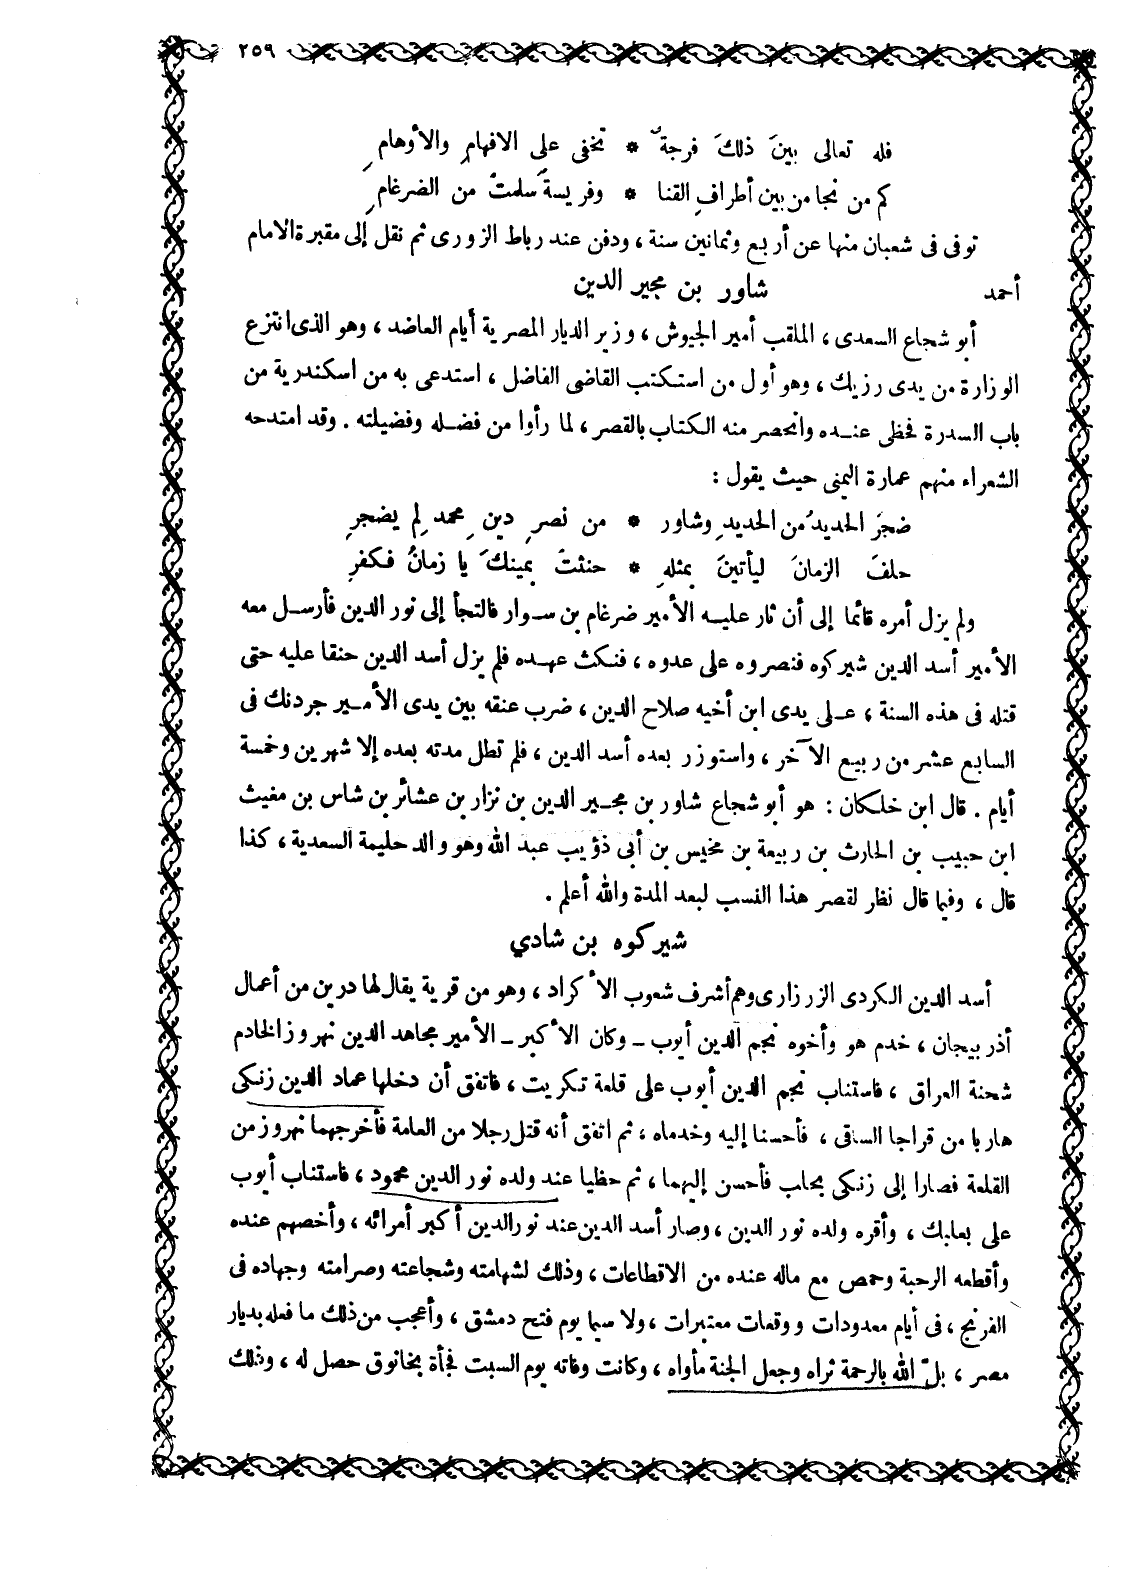 ٢٥٩
فله تعالى بينَ ذلكَ فرجةٌ * تخفى على الافهامِ والأوهامِ
كم من نجا من بين أطرافِ القنا * وفريسةٌ سلمتْ من الضرغامِ
توفى فى شعبان منها عن أربع وثمانين سنة ، ودفن عند رباط الزورى ثم نقل إلى مقبرة الامام
أحمد
شاور بن مجير الدين
أبو شجاع السعدى ، الملقب أمير الجيوش ، وزير الديار المصرية أيام العاضد ، وهو الذى انتزع
الوزارة من يدى رزيك ، وهو أول من استكتب القاضى الفاضل ، استدعى به من اسكندرية من
باب السدرة فحظى عنده وانحصر منه الكتاب بالقصر ، لما رأوا من فضله وفضيلته . وقد امتدحه
الشعراء منهم عمارة اليمنى حيث يقول :
ضجرَ الحديدُ من الحديدِ وشاور * من نصرِ دينِ محمدٍ لم يضجرِ
حلفَ الزمانَ ليأتينَ بمثلهِ * حنثتْ يمينكَ يا زمانُ فكفرِ
ولم يزل أمره قائما إلى أن ثار عليه الأمير ضرغام بن سوار فالتجأ إلى نور الدين فأرسل معه
الأمير أسد الدين شيركوه فنصروه على عدوه ، فنكث عهده فلم يزل أسد الدين حنقا عليه حتى
قتله فى هذه السنة ، على يدى ابن أخيه صلاح الدين ، ضرب عنقه بين يدى الأمير جردنك فى
السابع عشر من ربيع الآخر ، واستوزر بعده أسد الدين ، فلم تطل مدته بعده إلا شهرين وخمسة
أيام . قال ابن خلكان : هو أبو شجاع شاور بن مجير الدين بن نزار بن عشائر بن شاس بن مغيث
ابن حبيب بن الحارث بن ربيعة بن مخيس بن أبى ذؤيب عبد الله وهو والد حليمة السعدية ، كذا
قال ، وفيما قال نظر لقصر هذا النسب لبعد المدة والله أعلم .
شيركوه بن شادي
أسد الدين الكردى الزرزارى وهم أشرف شعوب الأكراد ، وهو من قرية يقال لها درين من أعمال
أذربيجان ، خدم هو وأخوه نجم الدين أيوب ــ وكان الأكبر ــ الأمير مجاهد الدين نهروز الخادم
شحنة العراق ، فاستناب نجم الدين أيوب على قلعة تكريت ، فاتفق أن دخلها عماد الدين زنكى
هاربا من قراجا الساقى ، فأحسنا إليه وخدماه ، ثم اتفق أنه قتل رجلا من العامة فأخرجهما نهروز من
القلعة فصارا إلى زنكى بحلب فأحسن إليهما ، ثم حظيا عند ولده نور الدين محمود ، فاستناب أيوب
على بعلبك ، وأقره ولده نور الدين ، وصار أسد الدين عند نور الدين أكبر أمرائه ، وأخصهم عنده
وأقطعه الرحبة وحمص مع ماله عنده من الاقطاعات ، وذلك لشهامته وشجاعته وصرامته وجهاده فى
الفرنج ، فى أيام معدودات ووقعات معتبرات ، ولا سيما يوم فتح دمشق ، وأعجب من ذلك ما فعله بديار
مصر ، بلّ الله بالرحمة ثراه وجعل الجنة مأواه ، وكانت وفاته يوم السبت فجأة بخانوق حصل له ، وذلك